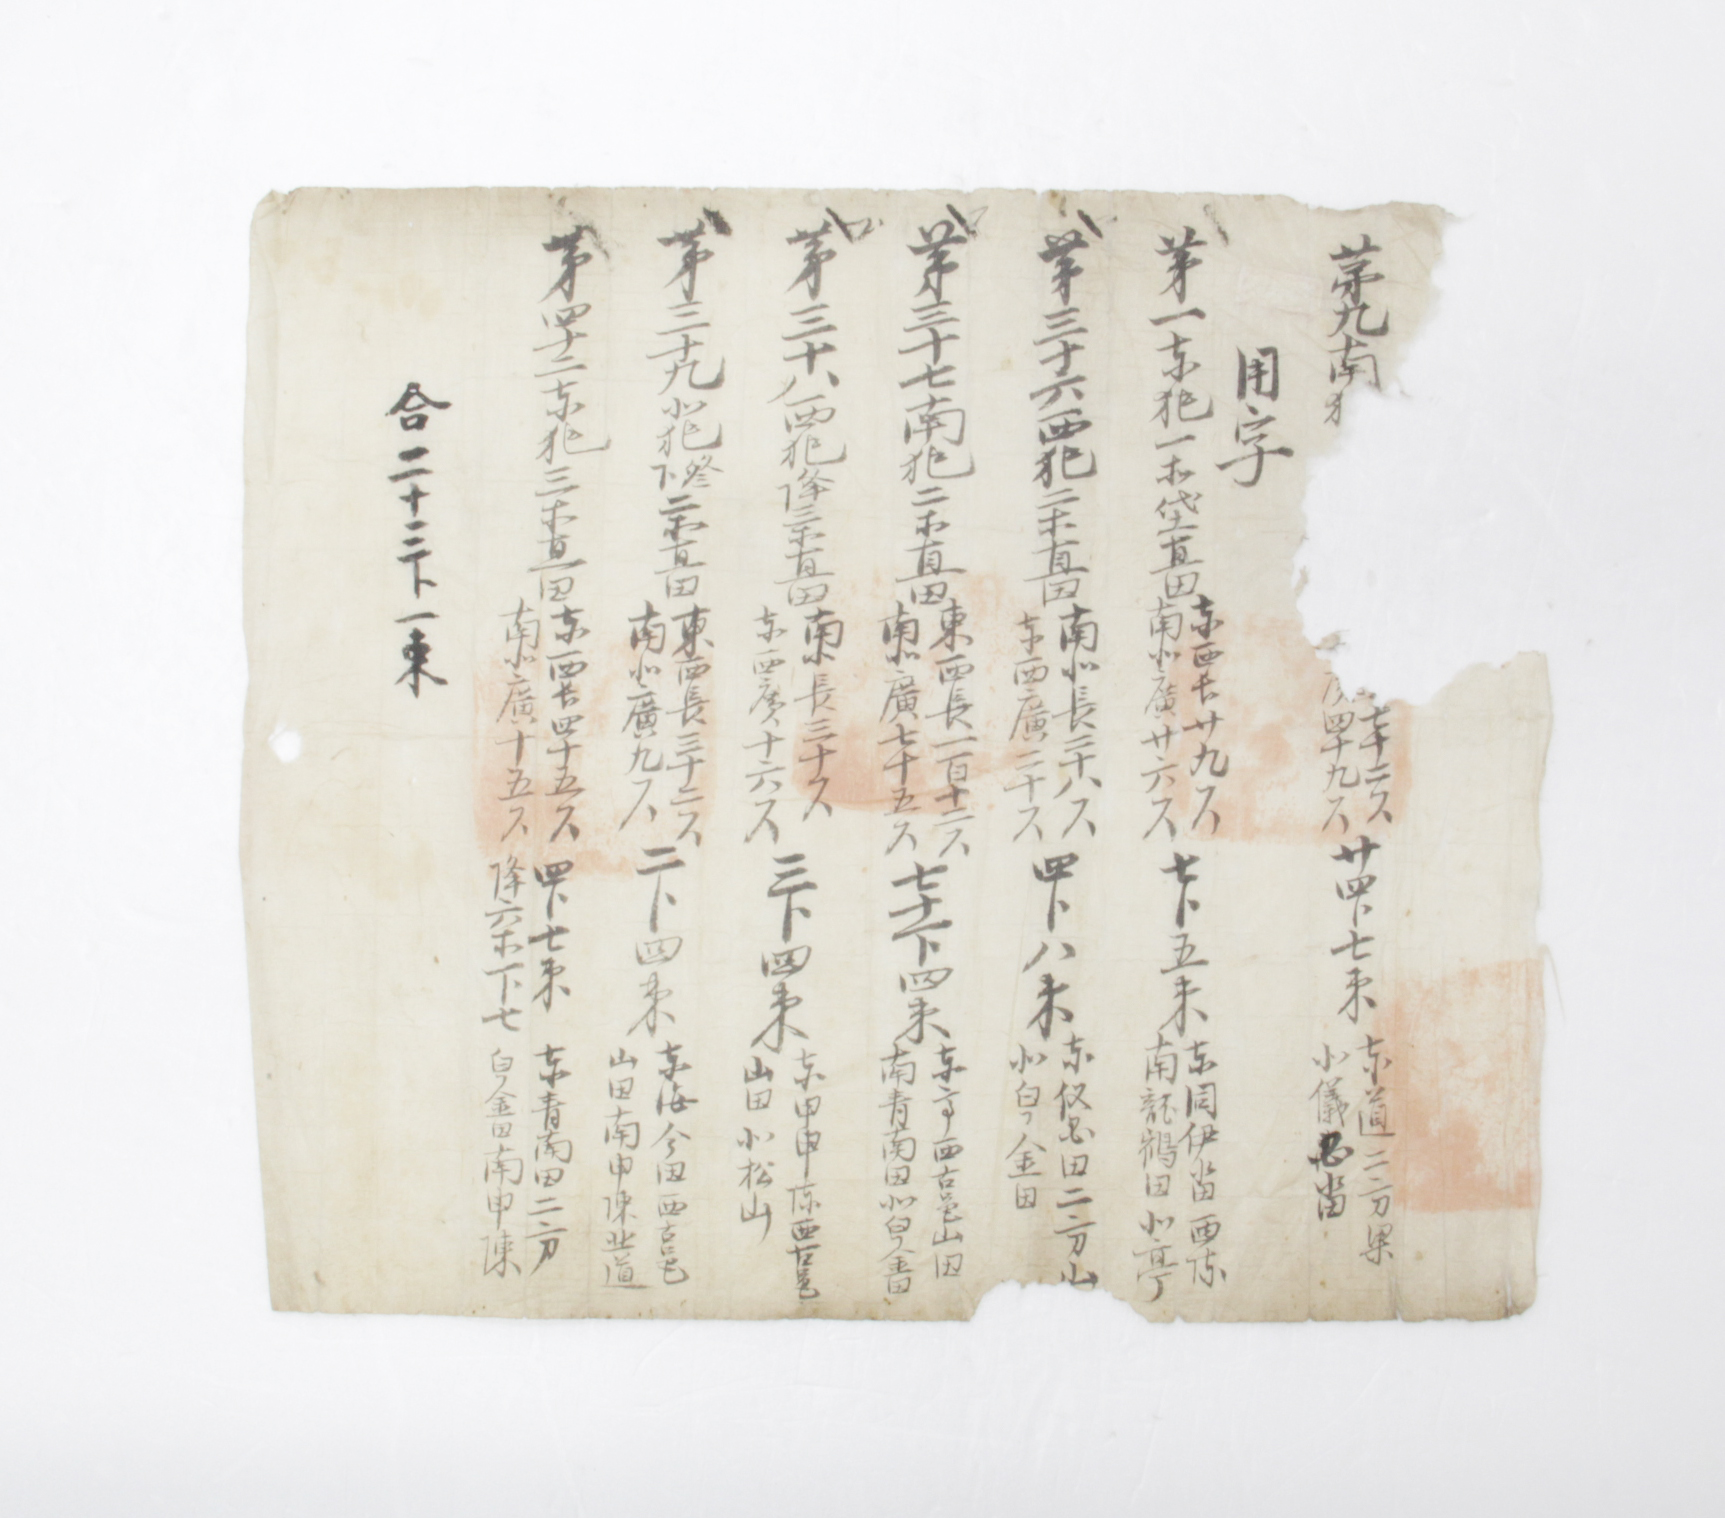 第九南犯
七十二尺
廣四十九尺
廿四卜七束
东道二方梁
北儀畓
用字
第一东犯一木垈直田
东西長廿九尺
南北廣廿六尺
七卜五束
东同伊畓西陈
南龍鶴田北亭
第三十六西犯二木直田
南北長二十八尺
东西廣二十尺
四卜八束
东仅田二方山
北白金田
第三十七南犯二木直田
東西長一百十二尺
南北廣七十五尺
七十卜四束
东亭西古邑山田
南青南田北白金田
第三十八西犯降三木直田
南北長三十尺
东西廣十六尺
三卜四束
东甲申陈西古邑
山田北松山
第三十九北犯二木直田
東西長三十二尺
南北廣九尺
二卜四束
东海今田西古邑
山田南申陳北道
第四十二东犯三木直田
东西長四十五尺
南北廣十五尺
四卜七束
降六木下七
东青南田二方
白金田南甲陳
合二十三卜一束